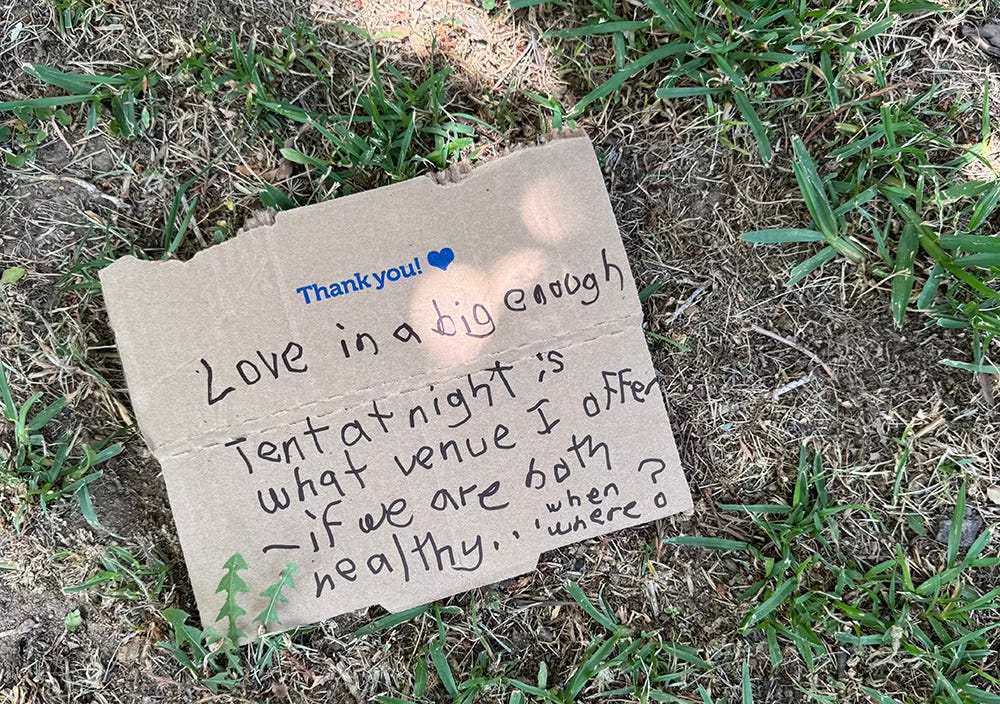 Thank you! 💙
Love in a big enough
Tent at night is
what venue I offer
– if we are both
healthy.. when
where?